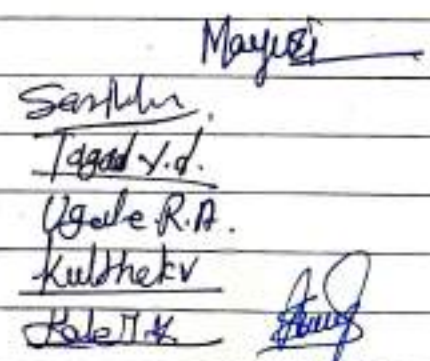 Mayuri
Tagad Y.d.
Ugale R.A.
Kulthe K V
Kale M.K